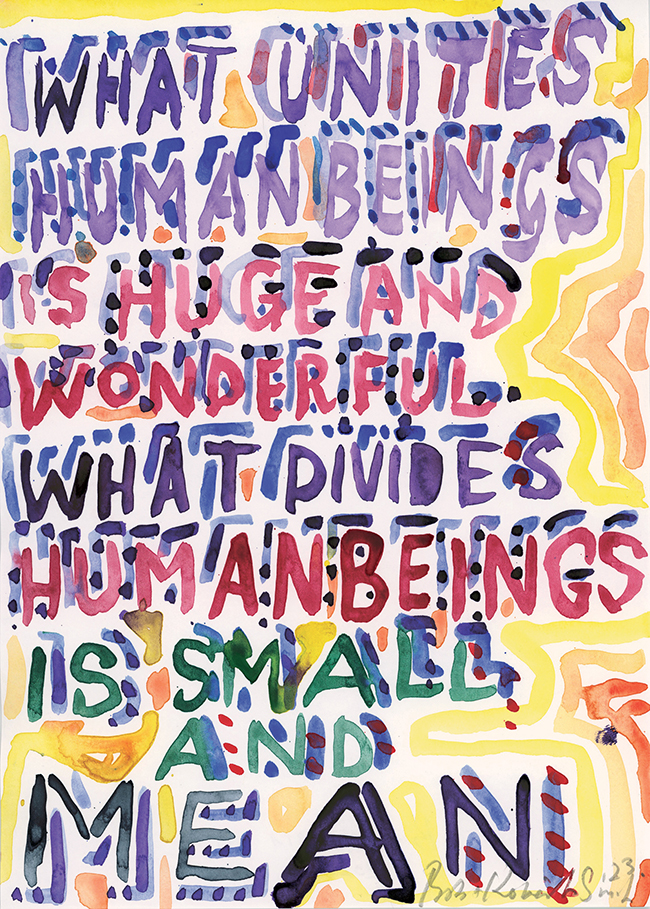 WHAT UNITIES
HUMANBEINGS
IS HUGE AND
WONDERFUL
WHAT DIVIDES
HUMANBEINGS
IS SMALL
AND
MEAN
Bob + Roberta Smith '23